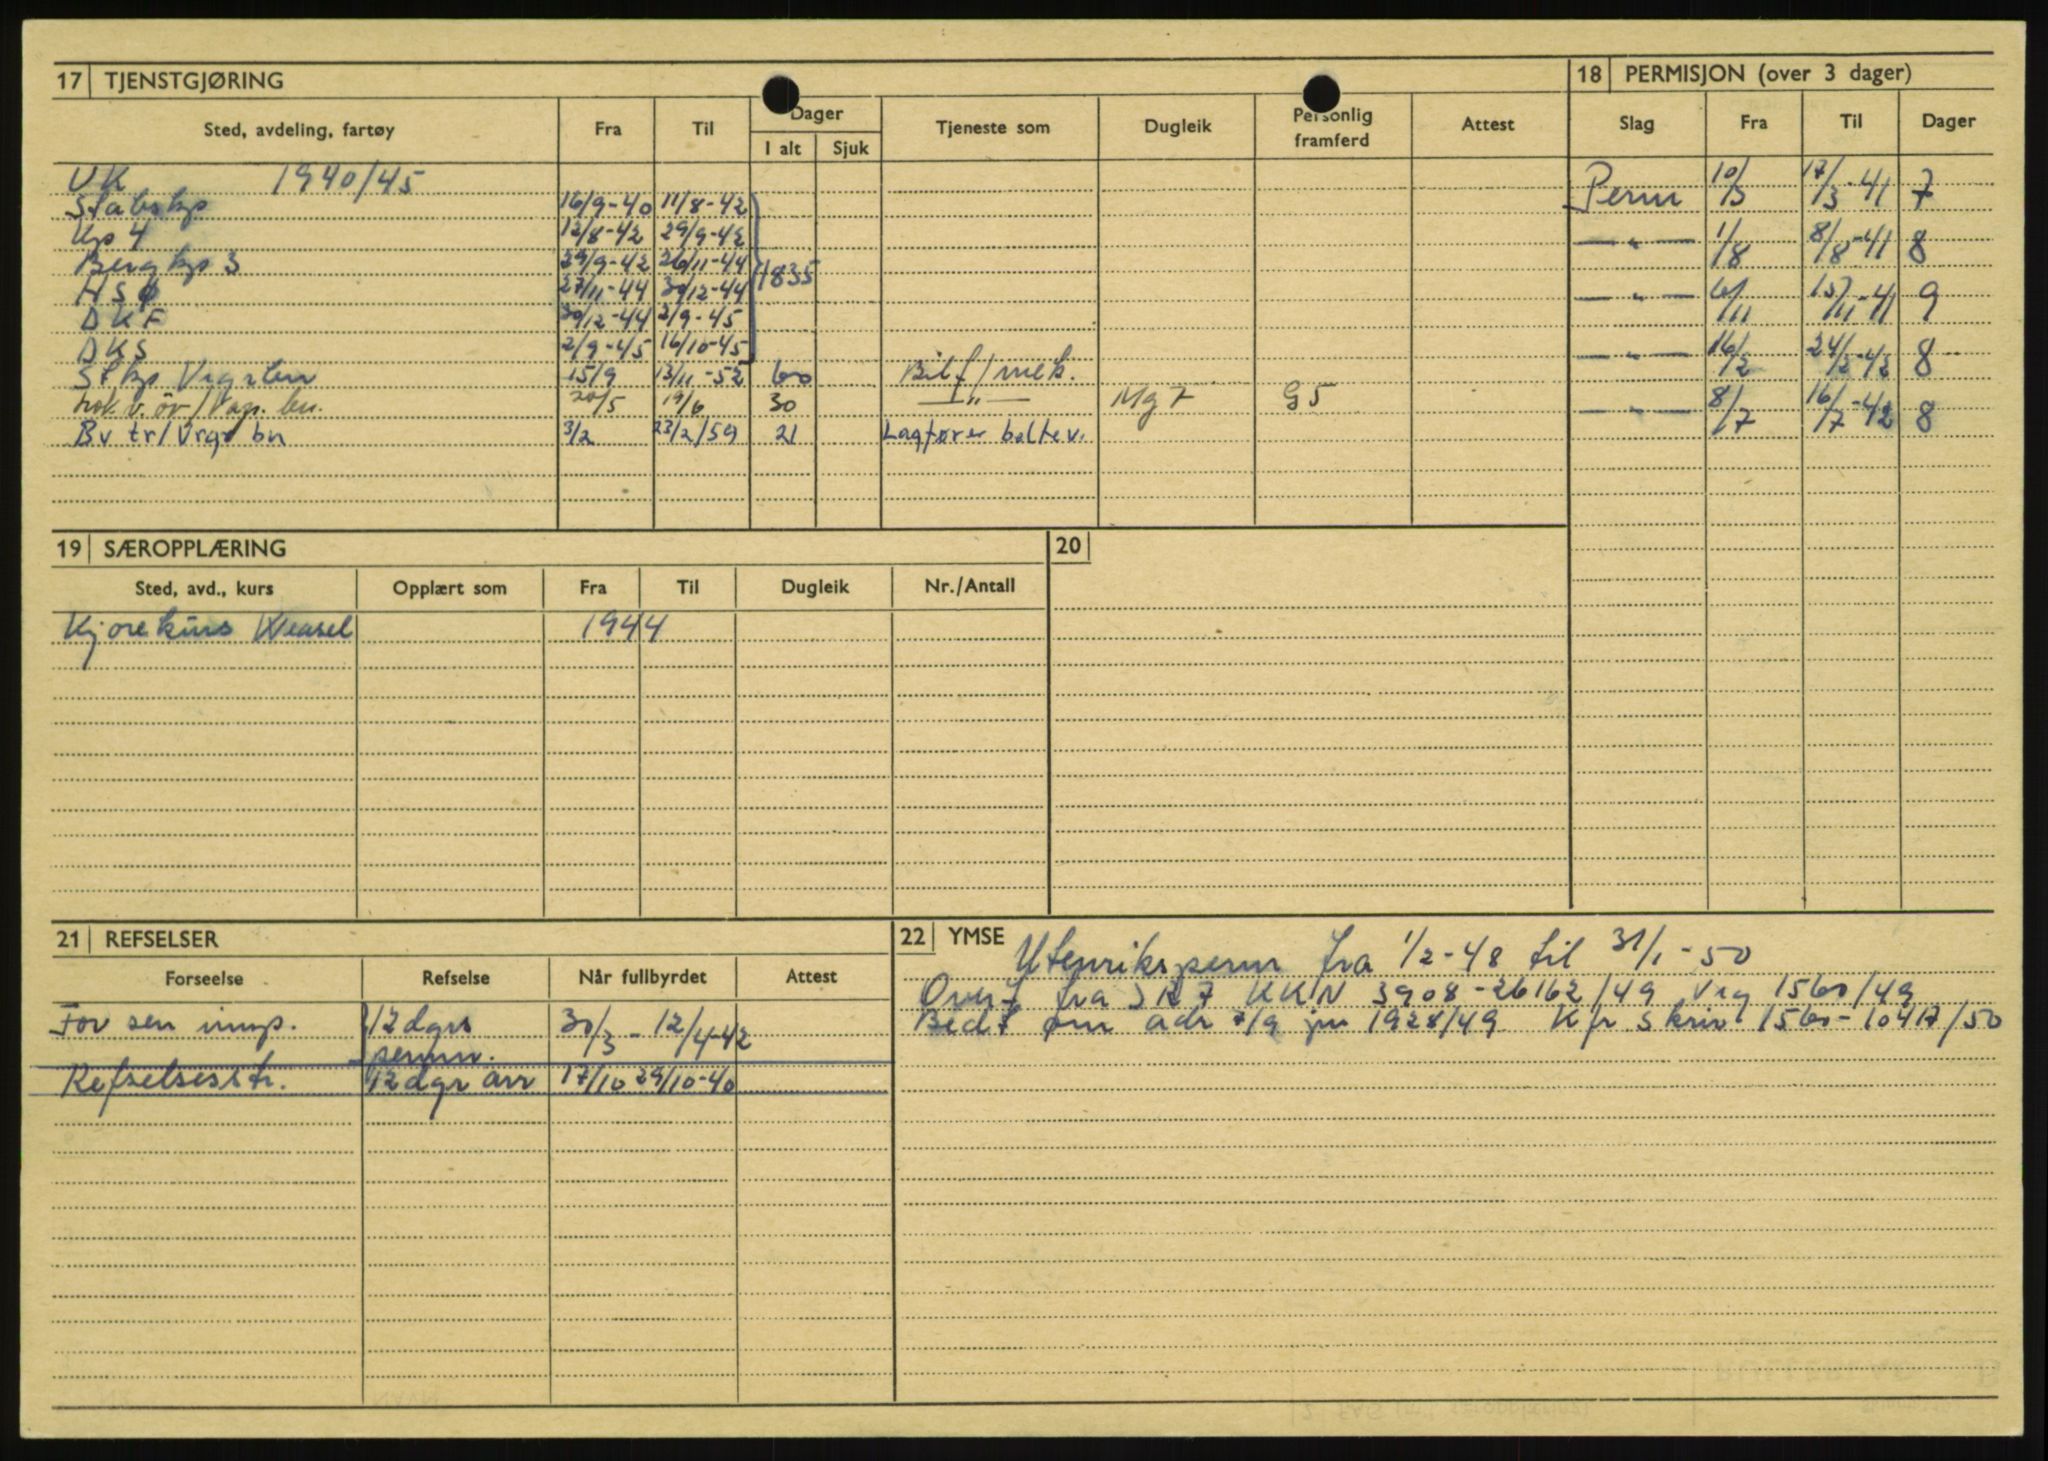 17 TJENSTGJØRING
Sted, avdeling, fartøy Fra Til Dager I alt Sjuk Tjeneste som Dugleik Personlig framferd Attest
UK 1940/45
Stabskp 16/9-40 11/8-42
Kp 4 12/8-42 29/9-42
Bergkp 3 29/9-42 26/11-44 1835
HSØ 27/11-44 30/12-44
DKF 30/12-44 2/9-45
DKS 2/9-45 16/10-45
Stkp Vrgsbn 15/9 13/11-52 60 Bilf/mek.
v. öv/ bn. 20/5 19/6 30 — " — Mg 7 G 5
Bv tr/Vrgs bn 3/2 23/2/59 21 Lagfører beltev.
18 PERMISJON (over 3 dager)
Slag Fra Til Dager
Perm 10/3 17/3-41 7
— " — 1/8 8/8-41 8
— " — 6/11 15/11-41 9
— " — 16/2 24/2-42 8
— " — 8/7 16/7-42 8
19 SÆROPPLÆRING
Sted, avd., kurs Opplært som Fra Til Dugleik Nr./Antall
Kjørekurs Weasel 1944
20
21 REFSELSER
Forseelse Refselse Når fullbyrdet Attest
For sen innp. 12 dgrs 30/3-12/4-42
permn.
Refselsesstr. 12 dgr arr 17/10 29/10-40
22 YMSE
Utenriksperm fra 1/2-48 til 31/1-50
Overf fra IR 7 KKN 3908-26162/49 Vrg 1560/49
Bedt om adr 7/9 jnr 1928/49 Kfr Skriv 1560-10417/50